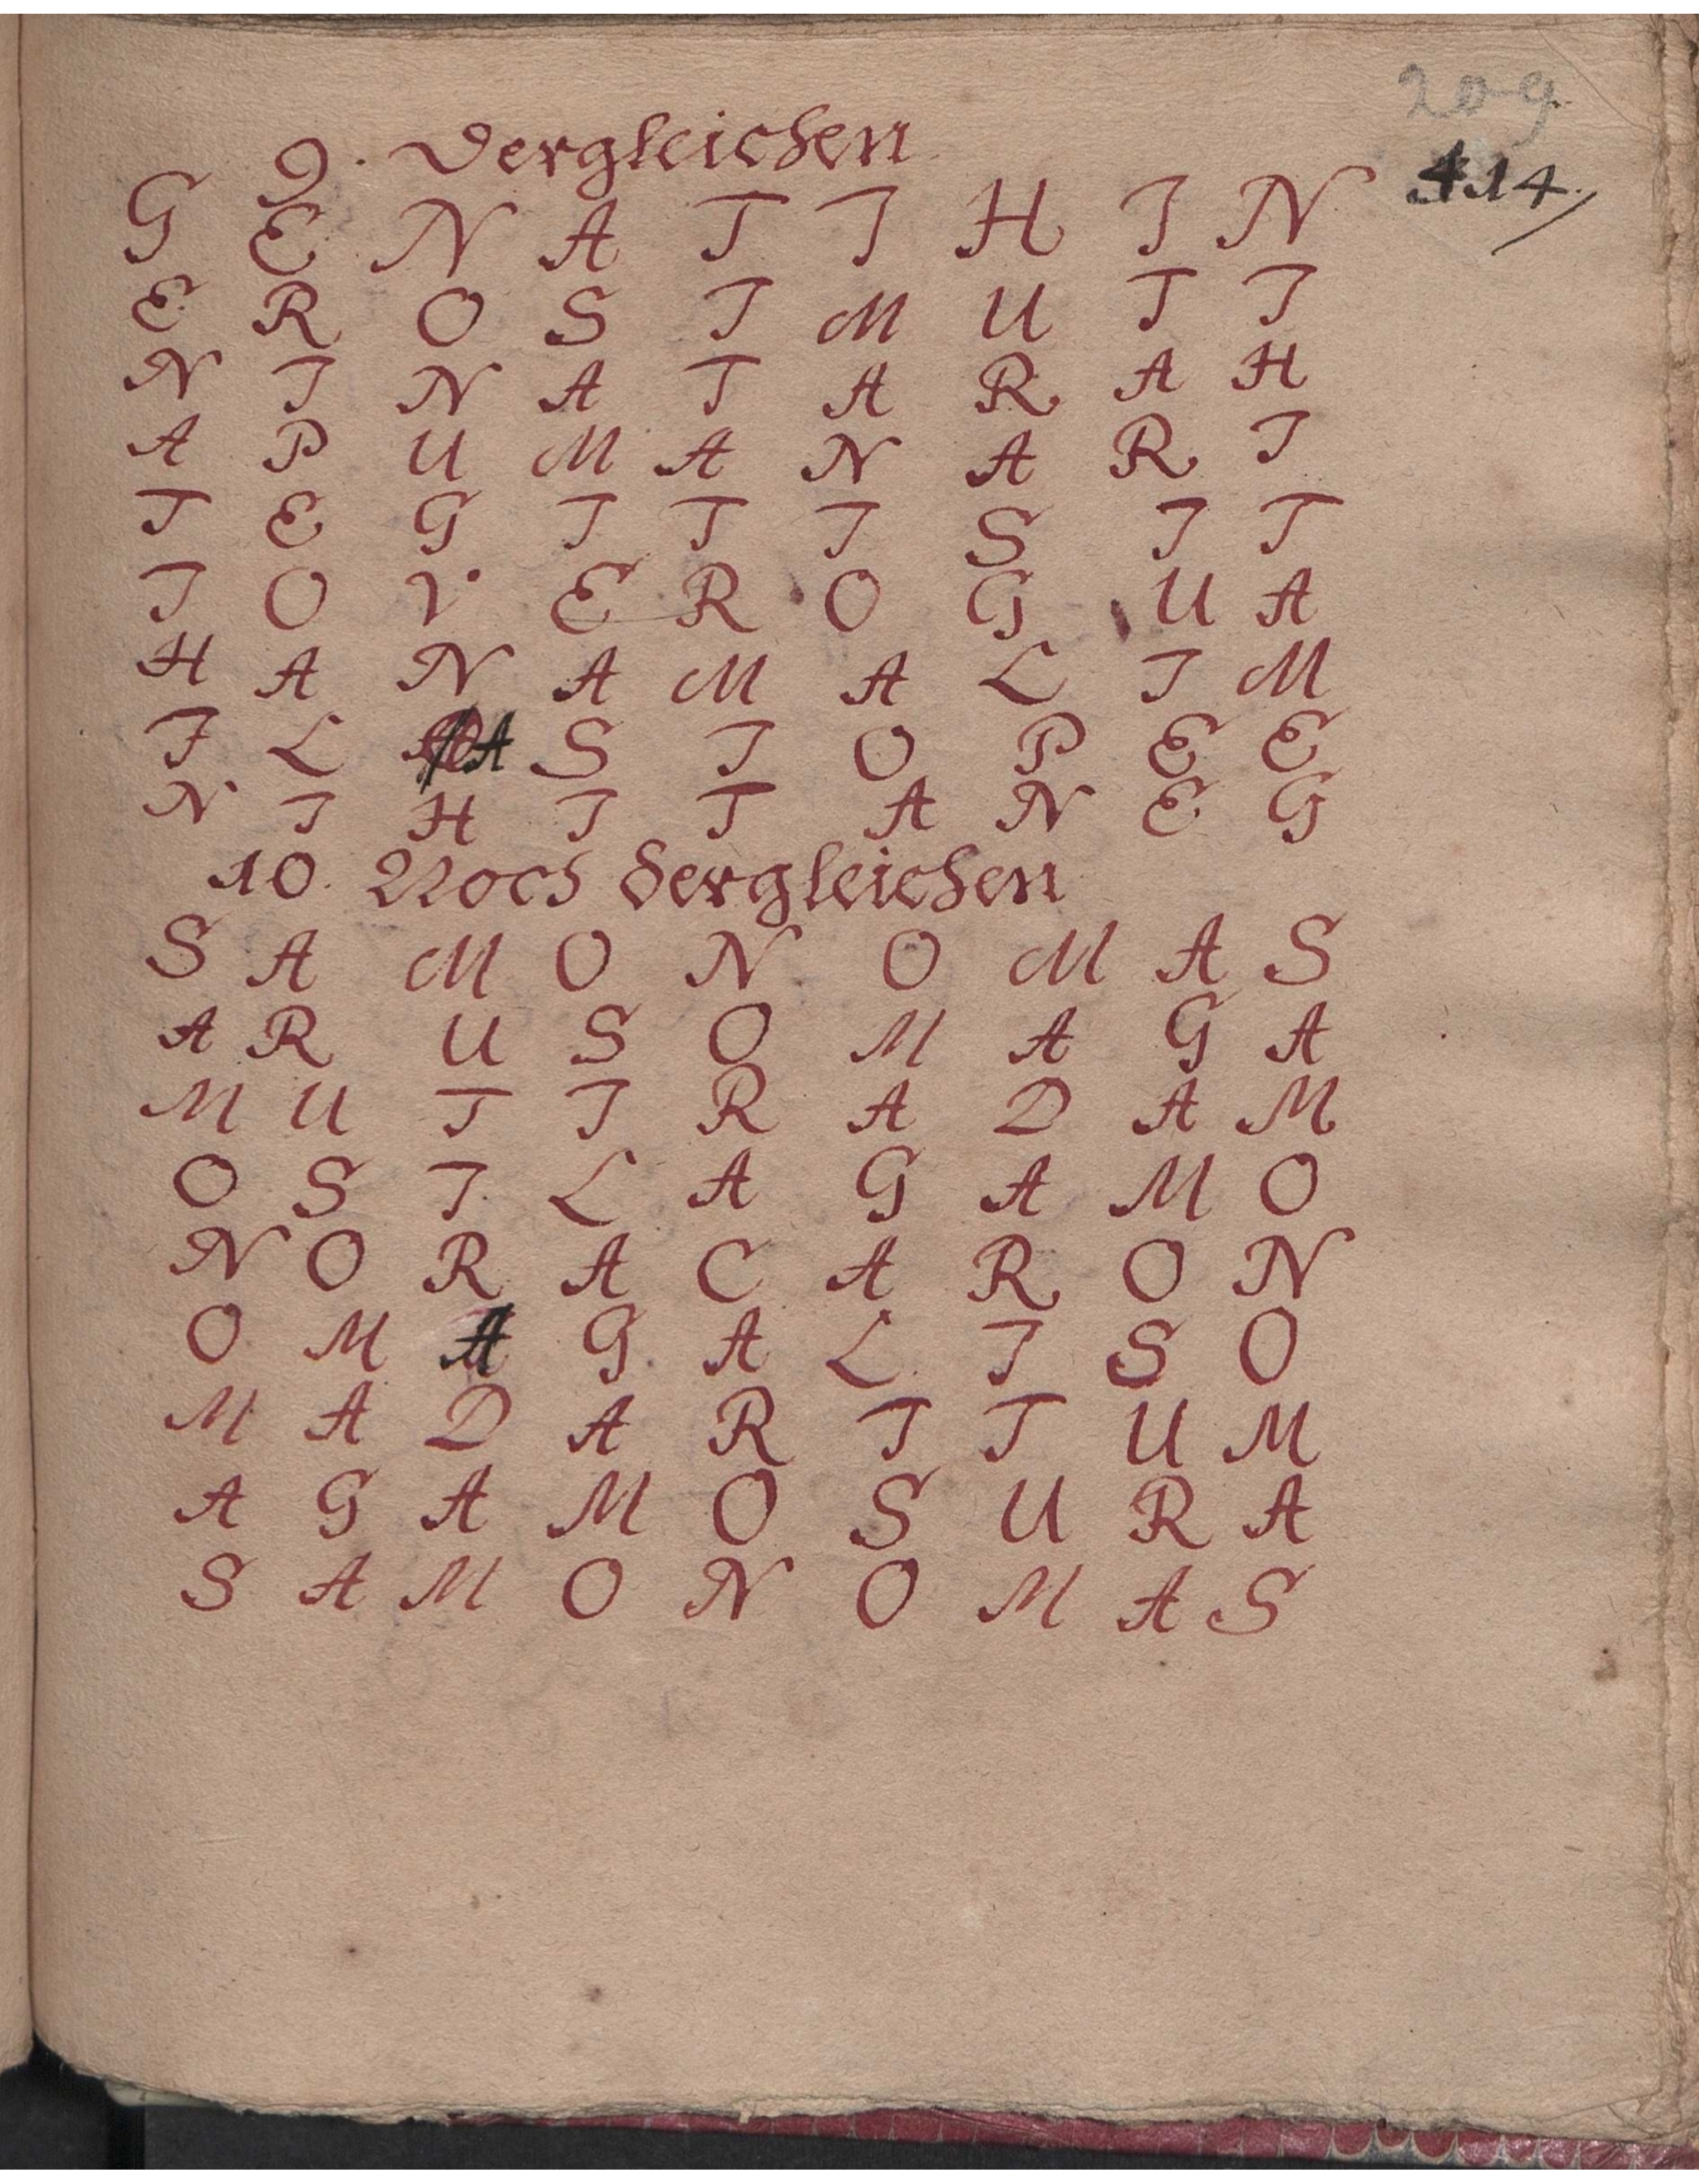 209
414
9. Dergleichen
G E N A T I H I N
E R O S I M U T I
N I N A T A R A H
A P U M A N A R I
T E G I T I S I T
I O V E R O G U A
H A N A M A L I M
I L A S I O P E E
N I H I T A N E G
10. Noch dergleichen
S A M O N O M A S
A R U S O M A G A
M U T I R A D A M
O S I L A G A M O
N O R A C A R O N
O M A G A L I S O
M A D A R I T U M
A G A M O S U R A
S A M O N O M A S